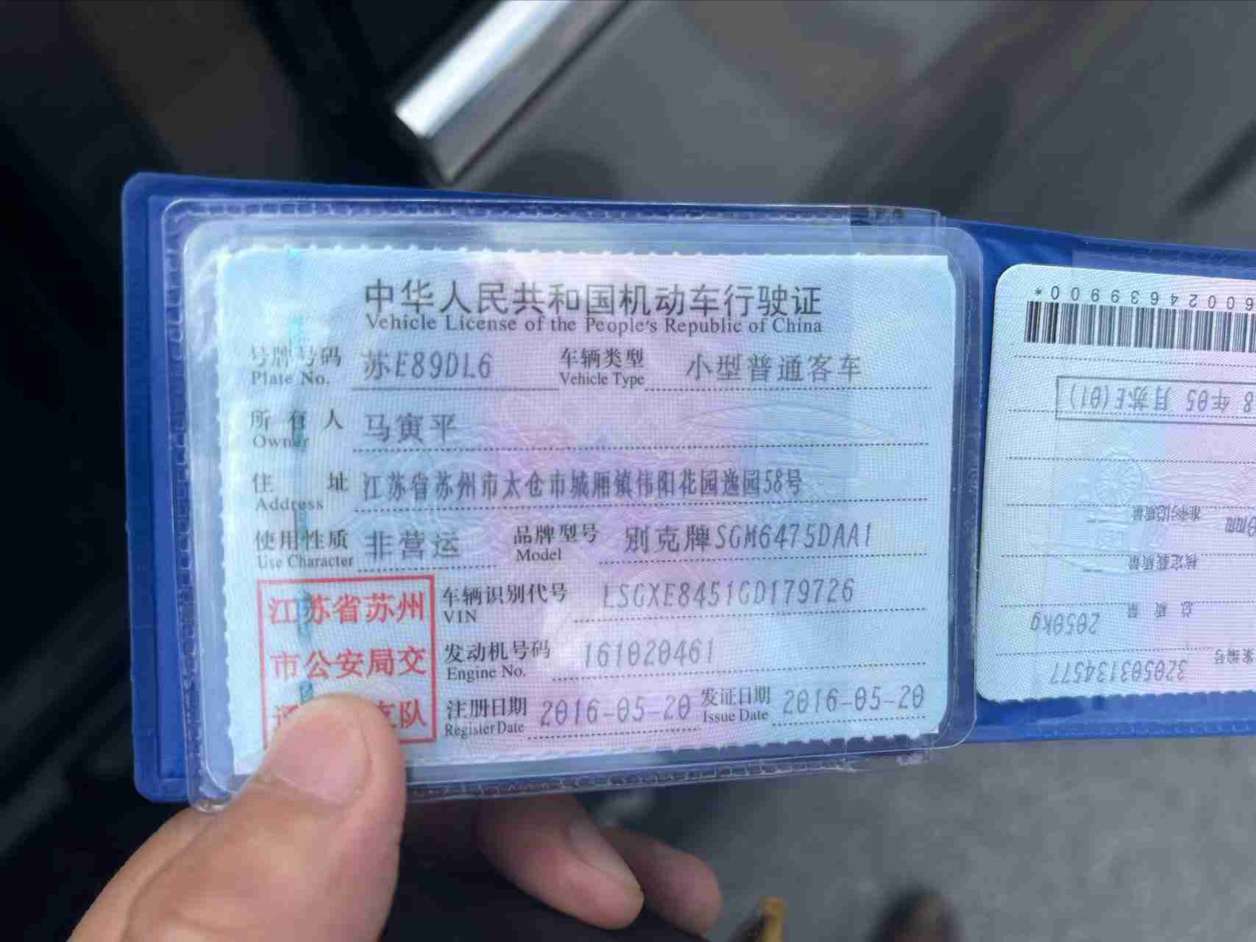 中华人民共和国机动车行驶证
Vehicle License of the People's Republic of China
号牌号码 苏E89DL6 车辆类型 小型普通客车
Plate No. Vehicle Type
所有人 马寅平
Owner
住址 江苏省苏州市太仓市城厢镇伟阳花园逸园58号
Address
使用性质 非营运 品牌型号 别克牌SGM6475DAA1
Use Character Model
江苏省苏州
市公安局交
支队
车辆识别代号 LSGXE8451GD179726
VIN
发动机号码 161020461
Engine No.
注册日期 2016-05-20 发证日期 2016-05-20
Register Date Issue Date
320503134577
总质量 2050kg
核定载质量
准牵引总质量
8年05月苏E(01)
6002463990 0*